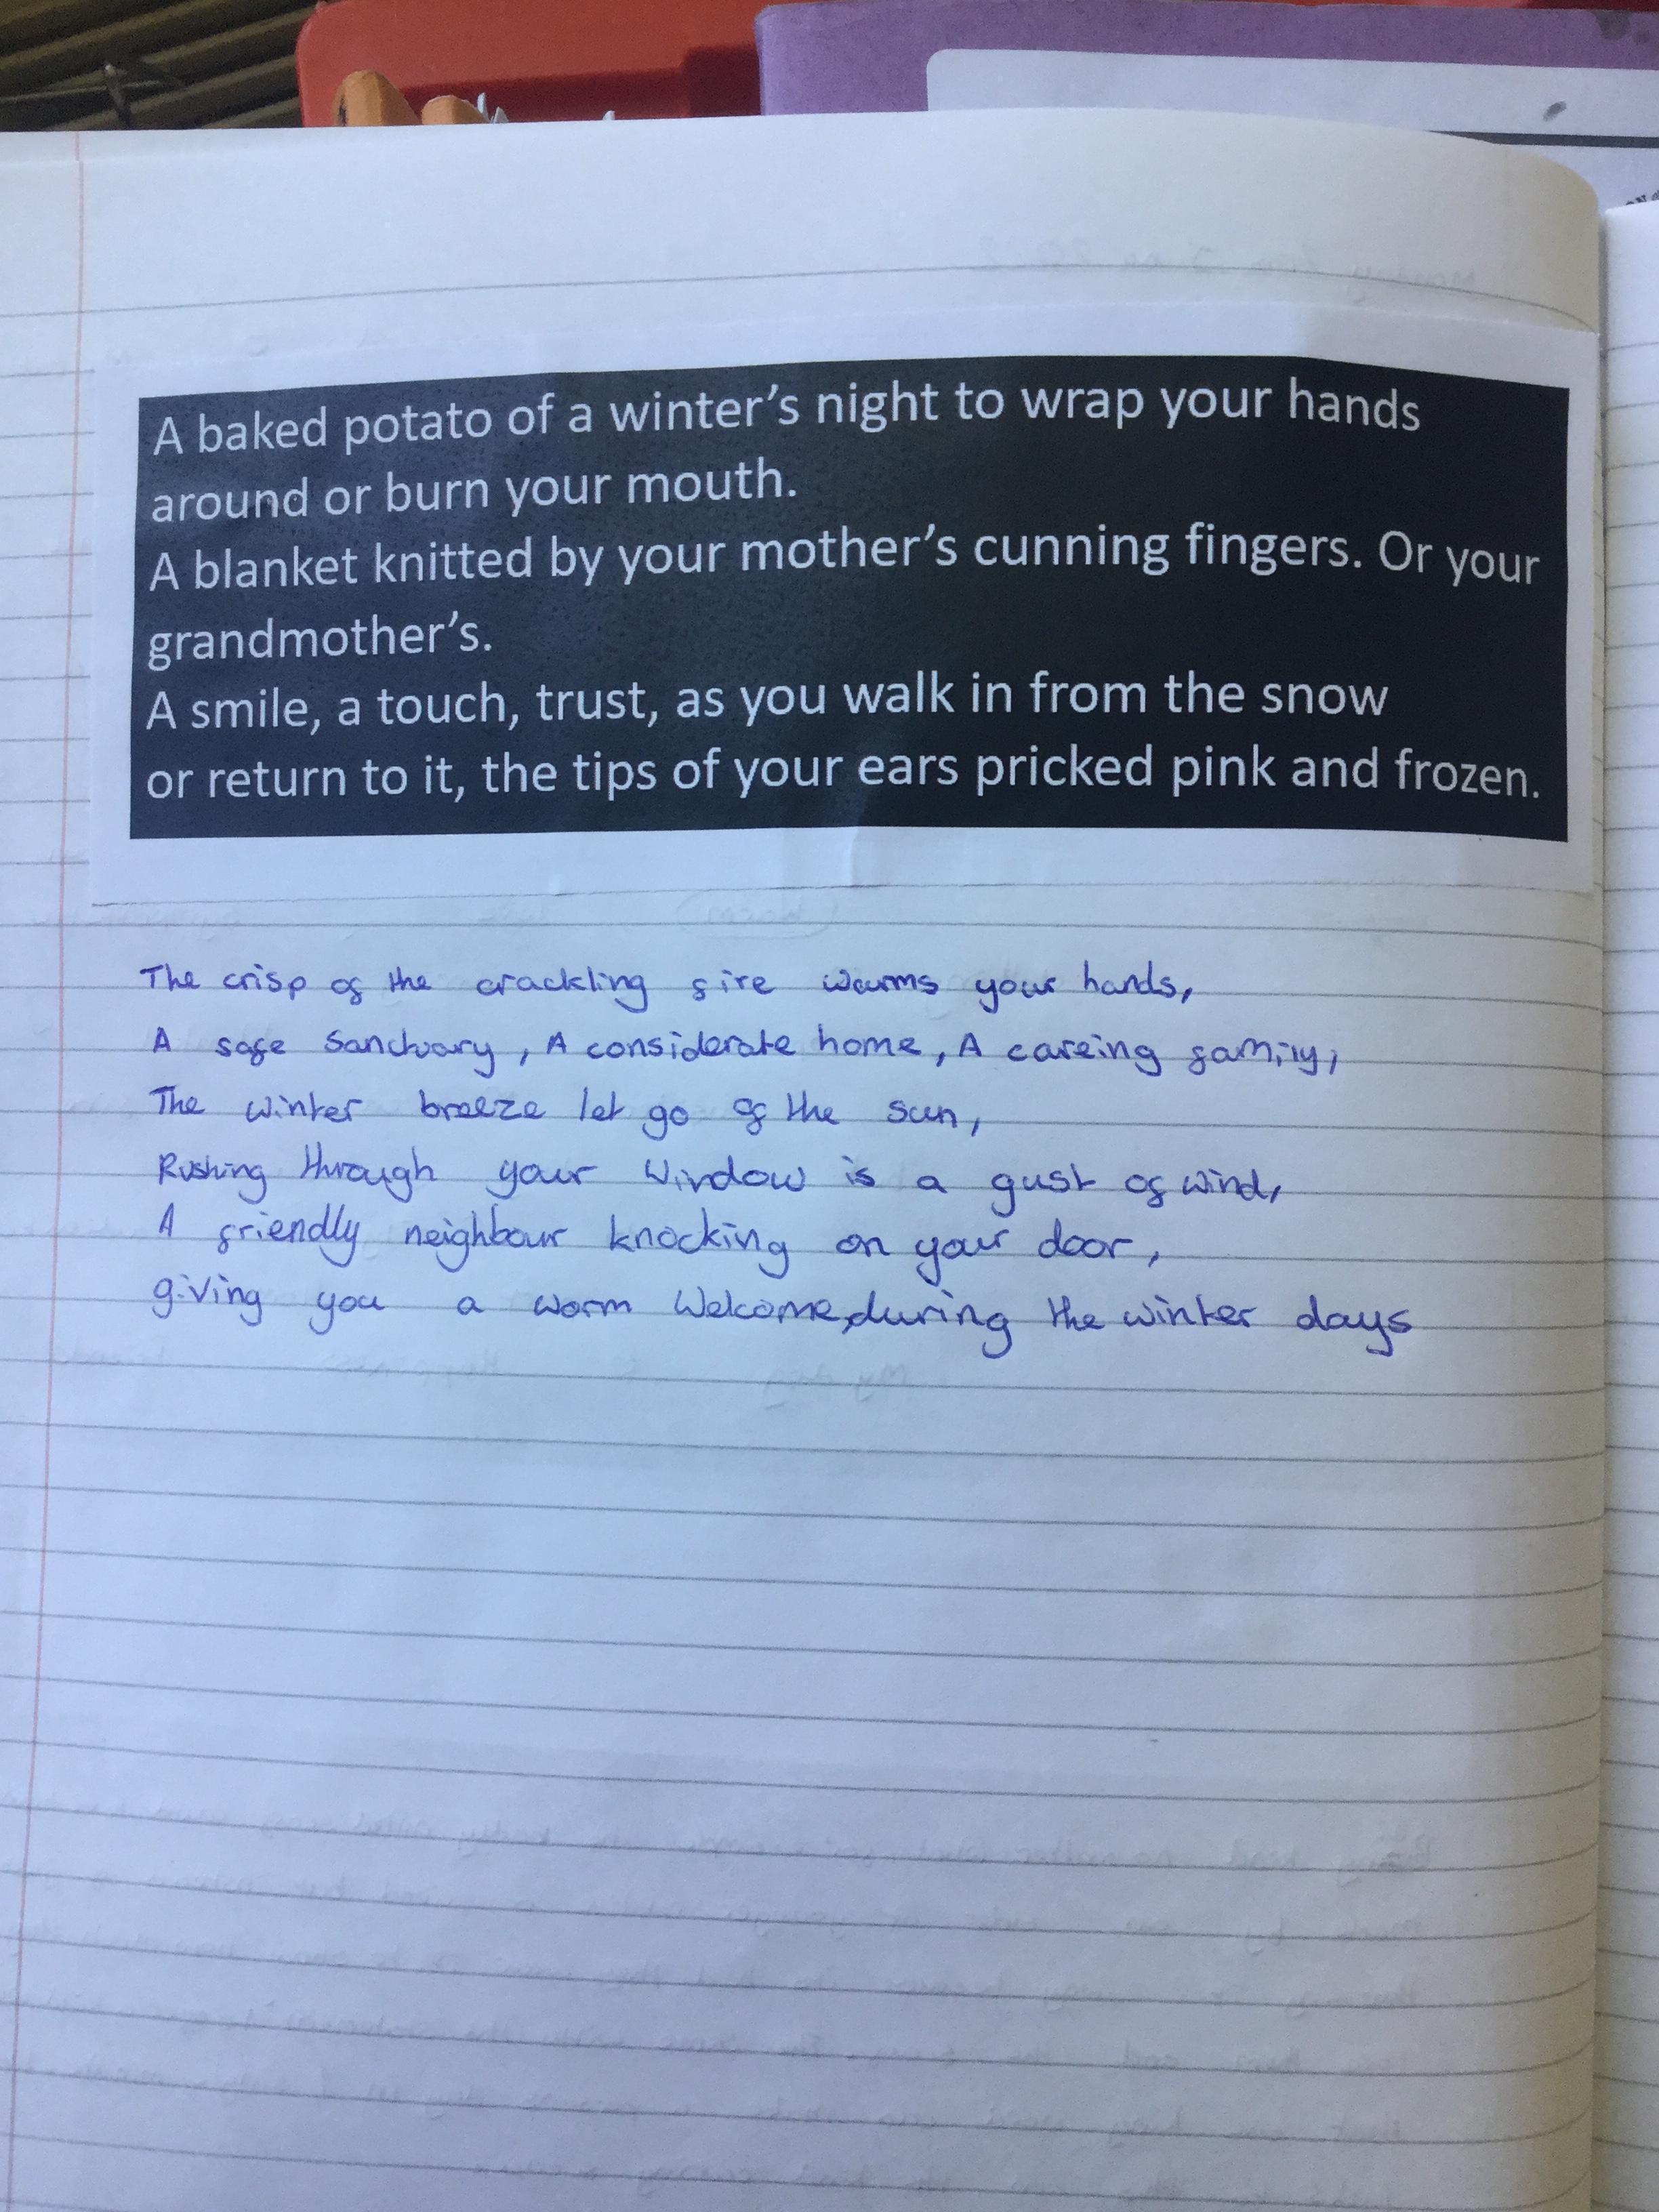 A baked potato of a winter's night to wrap your hands
around or burn your mouth.
A blanket knitted by your mother's cunning fingers. Or your
grandmother's.
A smile, a touch, trust, as you walk in from the snow
or return to it, the tips of your ears pricked pink and frozen.
The crisp of the crackling fire warms your hands,
A safe Sanctuary, A considerate home, A careing family,
The winter breeze let go of the sun,
Rushing through your window is a gust of wind,
A friendly neighbour knocking on your door,
giving you a warm Welcome, during the winter days